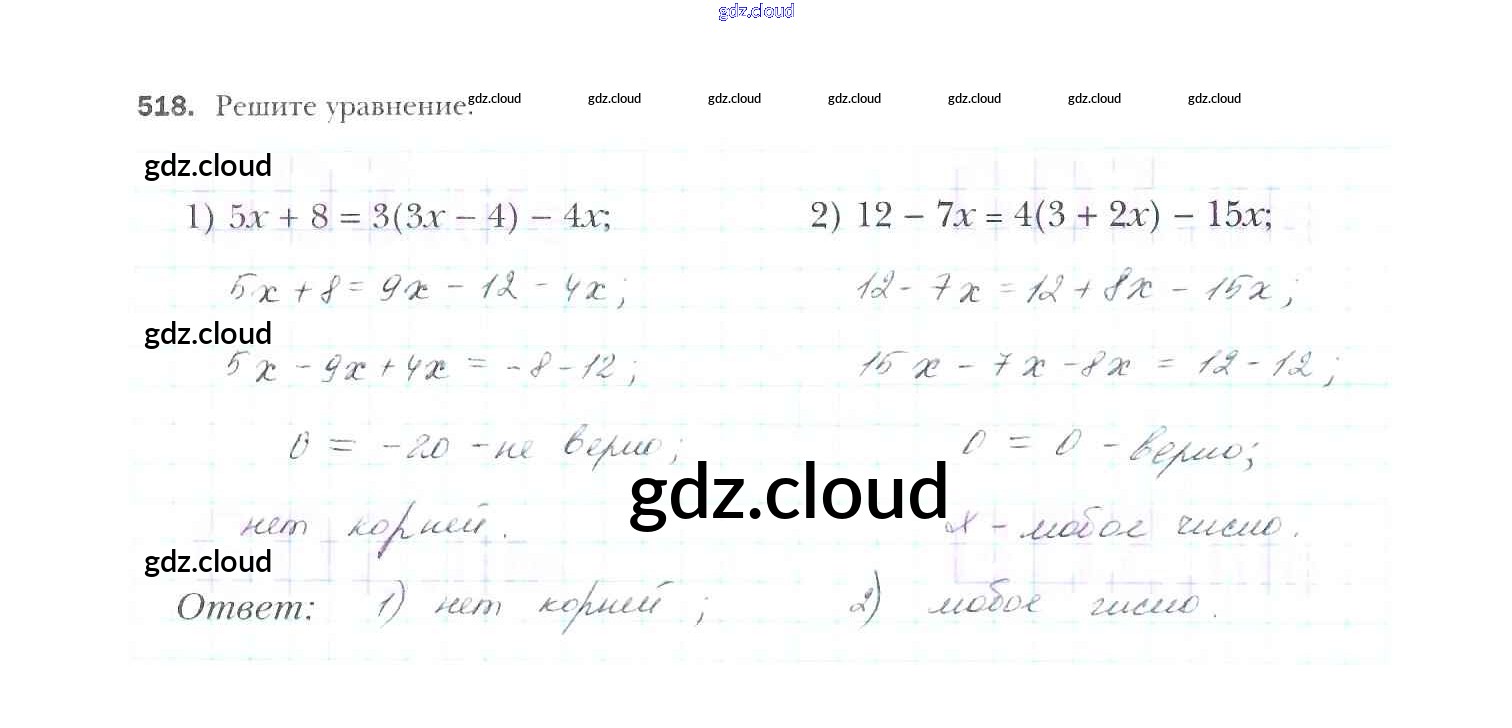 gdz.cloud
518. Решите уравнение: gdz.cloud gdz.cloud gdz.cloud gdz.cloud gdz.cloud gdz.cloud gdz.cloud
gdz.cloud
1) 5x + 8 = 3(3x − 4) − 4x; 2) 12 − 7x = 4(3 + 2x) − 15x;
5x + 8 = 9x − 12 − 4x; 12 − 7x = 12 + 8x − 15x;
gdz.cloud
5x − 9x + 4x = −8 − 12; 15x − 7x − 8x = 12 − 12;
0 = −20 − не верно; 0 = 0 − верно;
gdz.cloud
нет корней. x − любое число.
gdz.cloud
Ответ: 1) нет корней; 2) любое число.